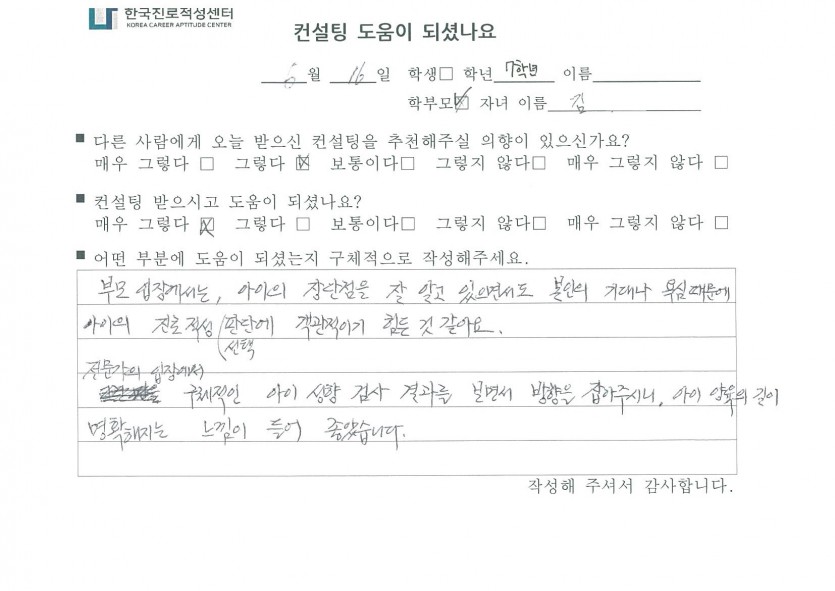 한국진로적성센터
KOREA CAREER APTITUDE CENTER
컨설팅 도움이 되셨나요
6월 16일 학생□ 학년 7학년 이름
학부모☑ 자녀 이름 김
■ 다른 사람에게 오늘 받으신 컨설팅을 추천해주실 의향이 있으신가요?
매우 그렇다 □ 그렇다 ☒ 보통이다□ 그렇지 않다□ 매우 그렇지 않다 □
■ 컨설팅 받으시고 도움이 되셨나요?
매우 그렇다 ☒ 그렇다 □ 보통이다□ 그렇지 않다□ 매우 그렇지 않다 □
■ 어떤 부분에 도움이 되셨는지 구체적으로 작성해주세요.
부모 입장에서는, 아이의 장단점을 잘 알고 있으면서도 본인의 기대나 욕심 때문에
아이의 진로 적성 (판단에 객관적이기 힘든 것 같아요.
(선택
전문가의 입장에서
구체적인 아이 성향 검사 결과를 보면서 방향을 잡아주시니, 아이 양육의 길이
명확해지는 느낌이 들어 좋았습니다.
작성해 주셔서 감사합니다.